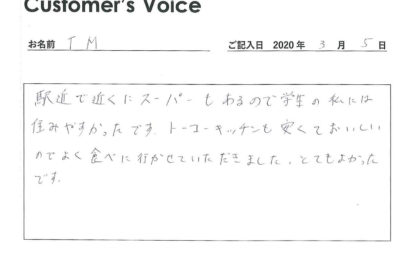 Customer's Voice
お名前 T M ご記入日 2020年 3 月 5 日
駅近で近くにスーパーもあるので学生の私には
住みやすかったです。トーコーキッチンも安くておいしい
のでよく食べに行かせていただきました。とてもよかった
です。